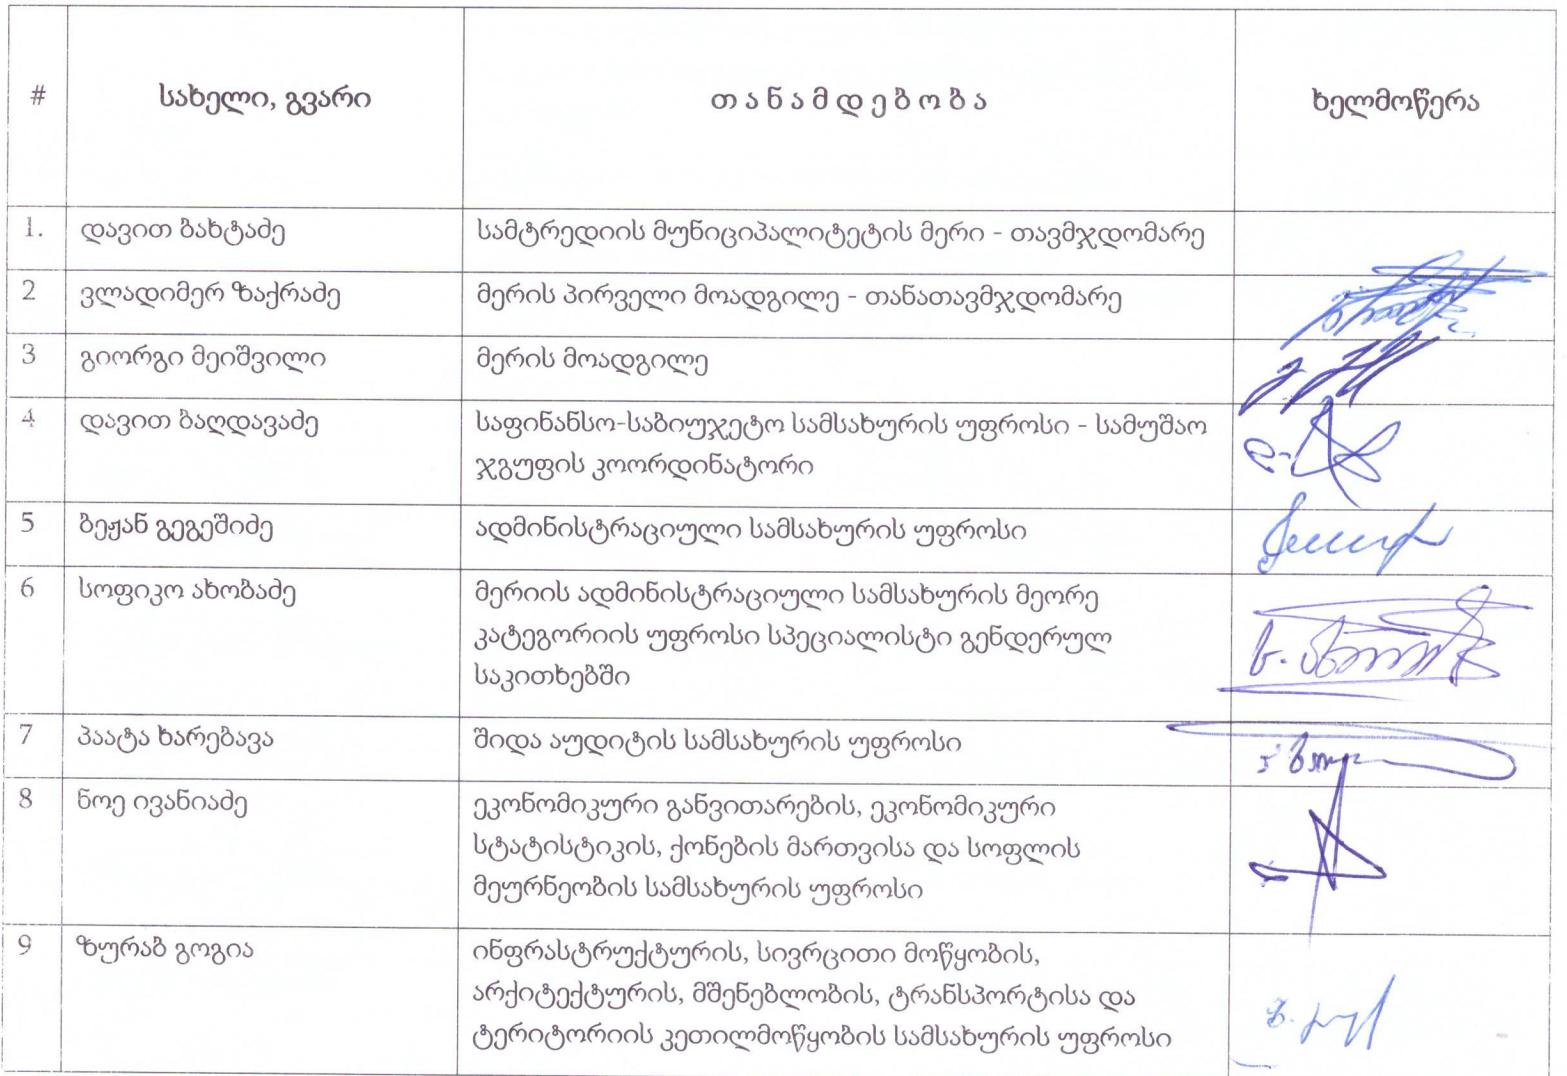 # სახელი, გვარი თ ა ნ ა მ დ ე ბ ო ბ ა ხელმოწერა
1. დავით ბახტაძე სამტრედიის მუნიციპალიტეტის მერი - თავმჯდომარე
2 ვლადიმერ ზაქრაძე მერის პირველი მოადგილე - თანათავმჯდომარე
3 გიორგი მეიშვილი მერის მოადგილე
4 დავით ბაღდავაძე საფინანსო-საბიუჯეტო სამსახურის უფროსი - სამუშაო
ჯგუფის კოორდინატორი
5 ბეჟან გეგეშიძე ადმინისტრაციული სამსახურის უფროსი
6 სოფიკო ახობაძე მერიის ადმინისტრაციული სამსახურის მეორე
კატეგორიის უფროსი სპეციალისტი გენდერულ
საკითხებში
7 პაატა ხარებავა შიდა აუდიტის სამსახურის უფროსი
8 ნოე ივანიაძე ეკონომიკური განვითარების, ეკონომიკური
სტატისტიკის, ქონების მართვისა და სოფლის
მეურნეობის სამსახურის უფროსი
9 ზურაბ გოგია ინფრასტრუქტურის, სივრცითი მოწყობის,
არქიტექტურის, მშენებლობის, ტრანსპორტისა და
ტერიტორიის კეთილმოწყობის სამსახურის უფროსი